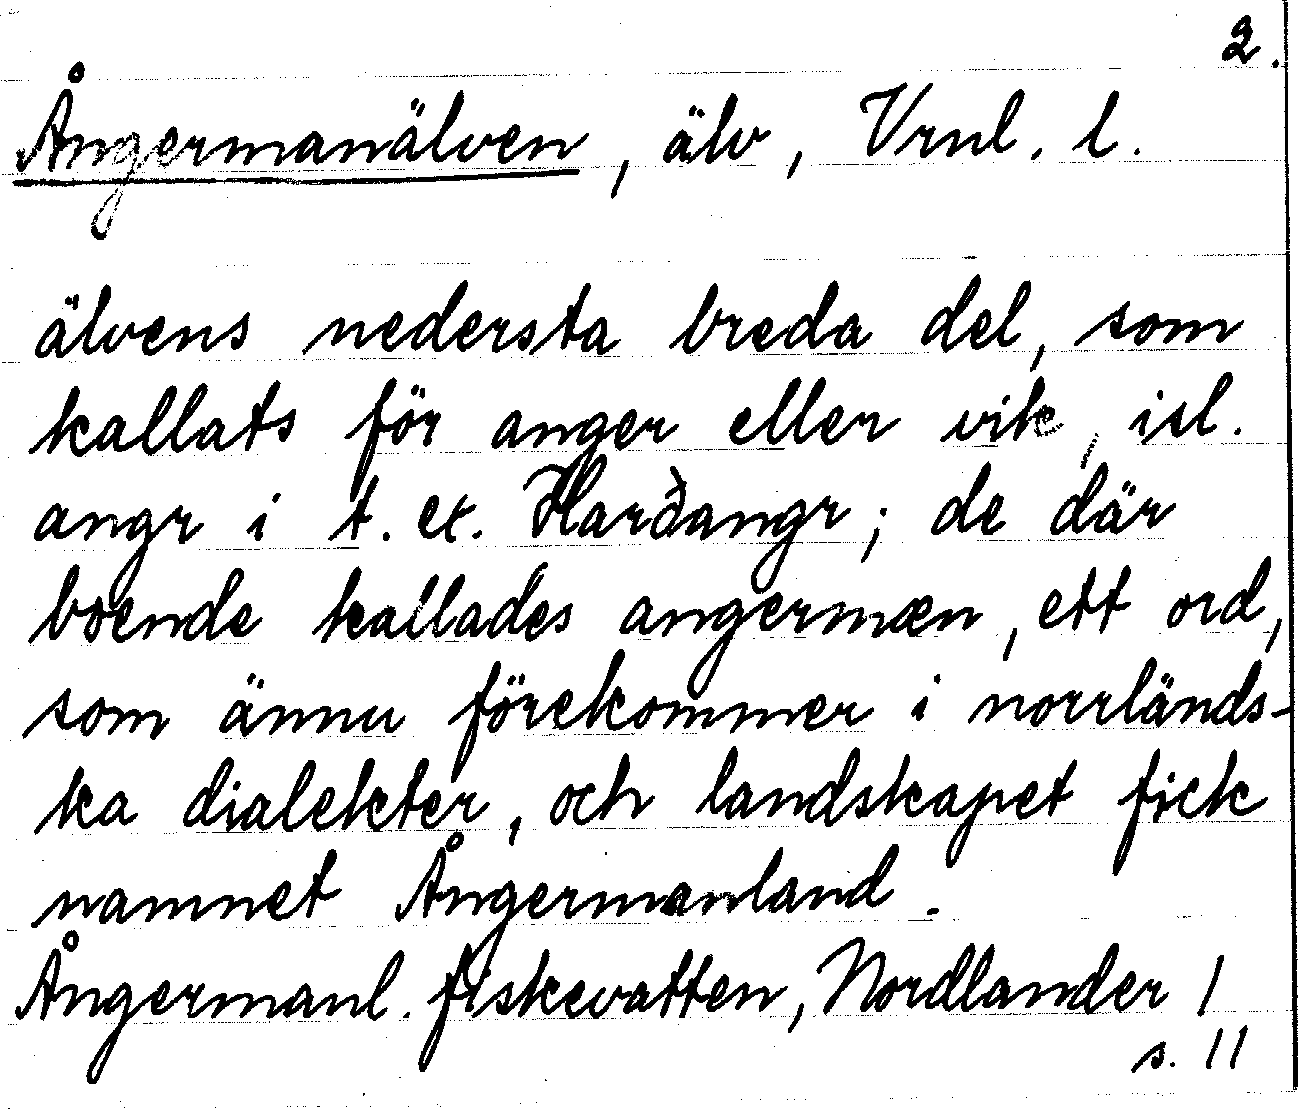 2.
Ångermanälven, älv, Vrnl. l.
älvens nedersta breda del, som
kallats för anger eller vik, isl.
angr i t. ex. Harðangr; de där
boende kallades angermæn, ett ord,
som ännu förekommer i norrländs-
ka dialekter, och landskapet fick
namnet Ångermanland.
Ångermanl. fiskevatten, Nordlander 1
s. 11